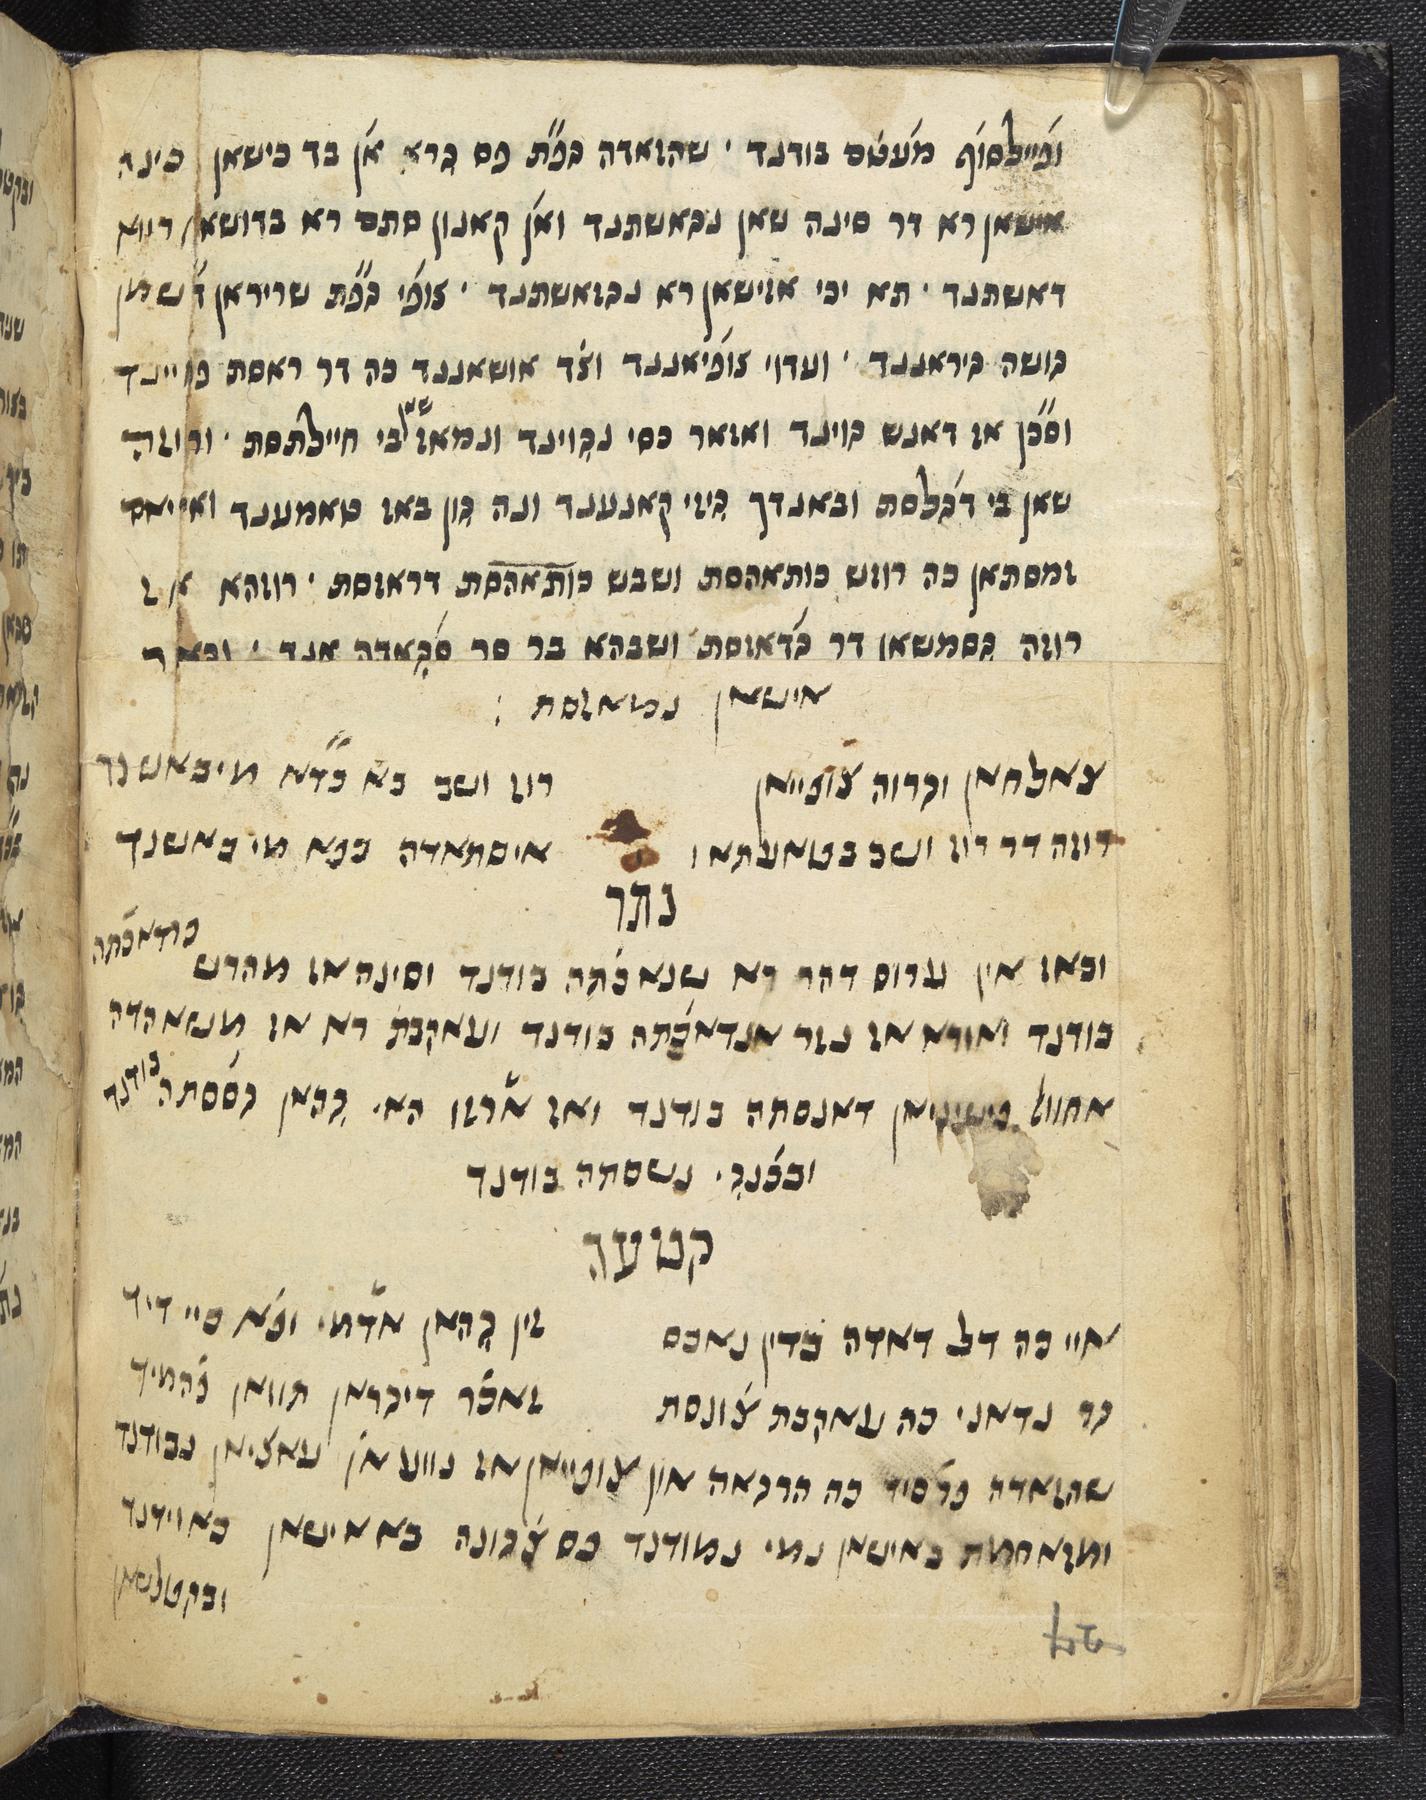 ופ̇יילסוף מעטס בודנד · שהזאדה גפ̇ת פס גרא אן בד כישאן כינה
אישאן רא דר סינה שאן נגאשתנד ואן קאנון סתם רא בדושאן רווא
דאשתנד · תא יכי אזישאן רא נגזאשתנד · צופ̇י גפ̇ת שריראן דשמן
גושה גיראננד · ועדוי צופ̇יאננד וצ̇ד אושאננד כה דר ראסת גויינד
וסכ̇ן אז דאנש גוינד ואזאר כסי נגוינד ונמאז שאן בי חיילתסת · ורוזה
שאן בי דג̇לסת ובאנדך ג̇יזי קאנענד ונה ג̇ון באז טאמענד ואייאם
זמסתאן כה רוזש כותאהסת ושבש כותאהסת דראזסת · רוזהא אז
רוזה ג̇סמשאן דר גדאזסת ושבהא בר סר סג̇אדה אנד · ובאר
אישאן נמאזסת :
צאלחאן וגרוה צופייאן רוז ושב בא כ̇דא מיבאשנד
רוזה דר רוז ושב בטאעתאו איסתאדה בפא מי באשנד
נתר
ובאז אין ערוס דהר רא שנאכ̇תה בודנד וסינה אז מהרש פרדאכ̇תה
בודנד ואורא אז נזר אנדאכ̇תה בודנד ועאקבת רא אז משאהדה
אחוול פישיניאן דאנסתה בודנד ואז ארזו האי ג̇האן גססתה בודנד
ובכ̇נג̇י נשסתה בודנד
קטעה
איי כה דל דאדה בדין נאכס זין ג̇האן אדמי ופ̇א כיי דיד
גר נדאני כה עאקבת צ̇ונסת זאכ̇ר דיגראן תוואן פ̇המיד
שהזאדה פרסיד כה הרגאה אין צופייאן אז נווע אן עאציאן נבודנד
ומזאחמת באישאן נמי נמודנד פס צ̇גונה בא אישאן כאוידנד
ובקטלשאן